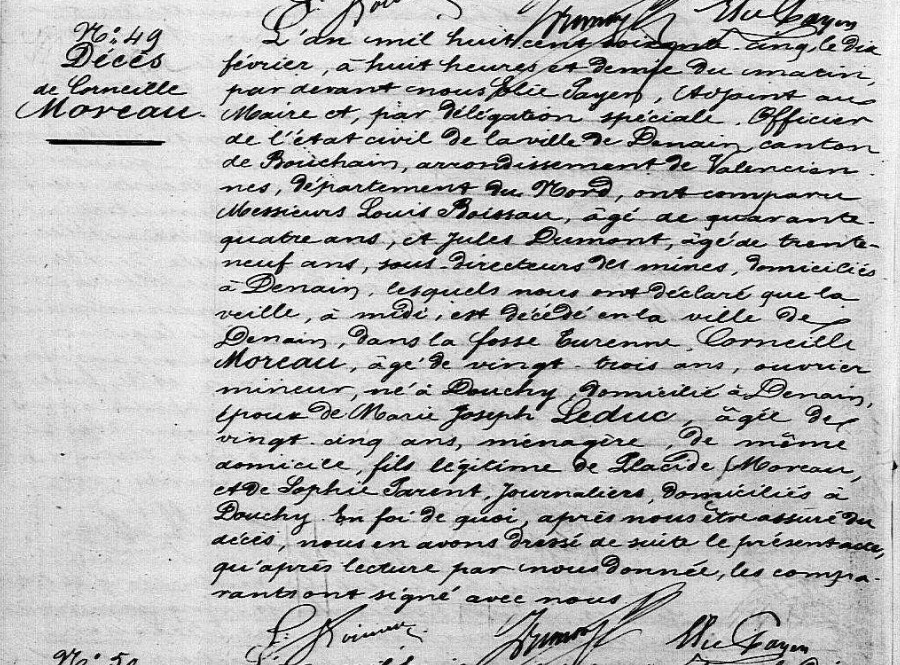 Elie Payen
N.º 49
Décès
de Corneille
Moreau.
L'an mil huit cent soixante-cinq, le dix
février, à huit heures et demie du matin,
par devant nous Elie Payen, Adjoint au
Maire et, par délégation spéciale, Officier
de l'état civil de la ville de Denain, canton
de Bouchain, arrondissement de Valencien-
nes, département du Nord, ont comparu
Messieurs Louis Boissau, âgé de quarante-
quatre ans, et Jules Dumont, âgé de trente-
neuf ans, sous-directeurs des mines, domiciliés
à Denain, lesquels nous ont déclaré que la
veille, à midi, est décédé en la ville de
Denain, dans la fosse Turenne, Corneille
Moreau, âgé de vingt-trois ans, ouvrier
mineur, né à Douchy, domicilié à Denain,
époux de Marie Joseph Leduc, âgée de
vingt-cinq ans, ménagère, de même
domicile, fils légitime de Placide Moreau,
et de Sophie Parent, journaliers, domiciliés à
Douchy. En foi de quoi, après nous être assuré du
décès, nous en avons dressé de suite le présent acte,
qu'après lecture par nous donnée, les compa-
rants ont signé avec nous
Elie Payen